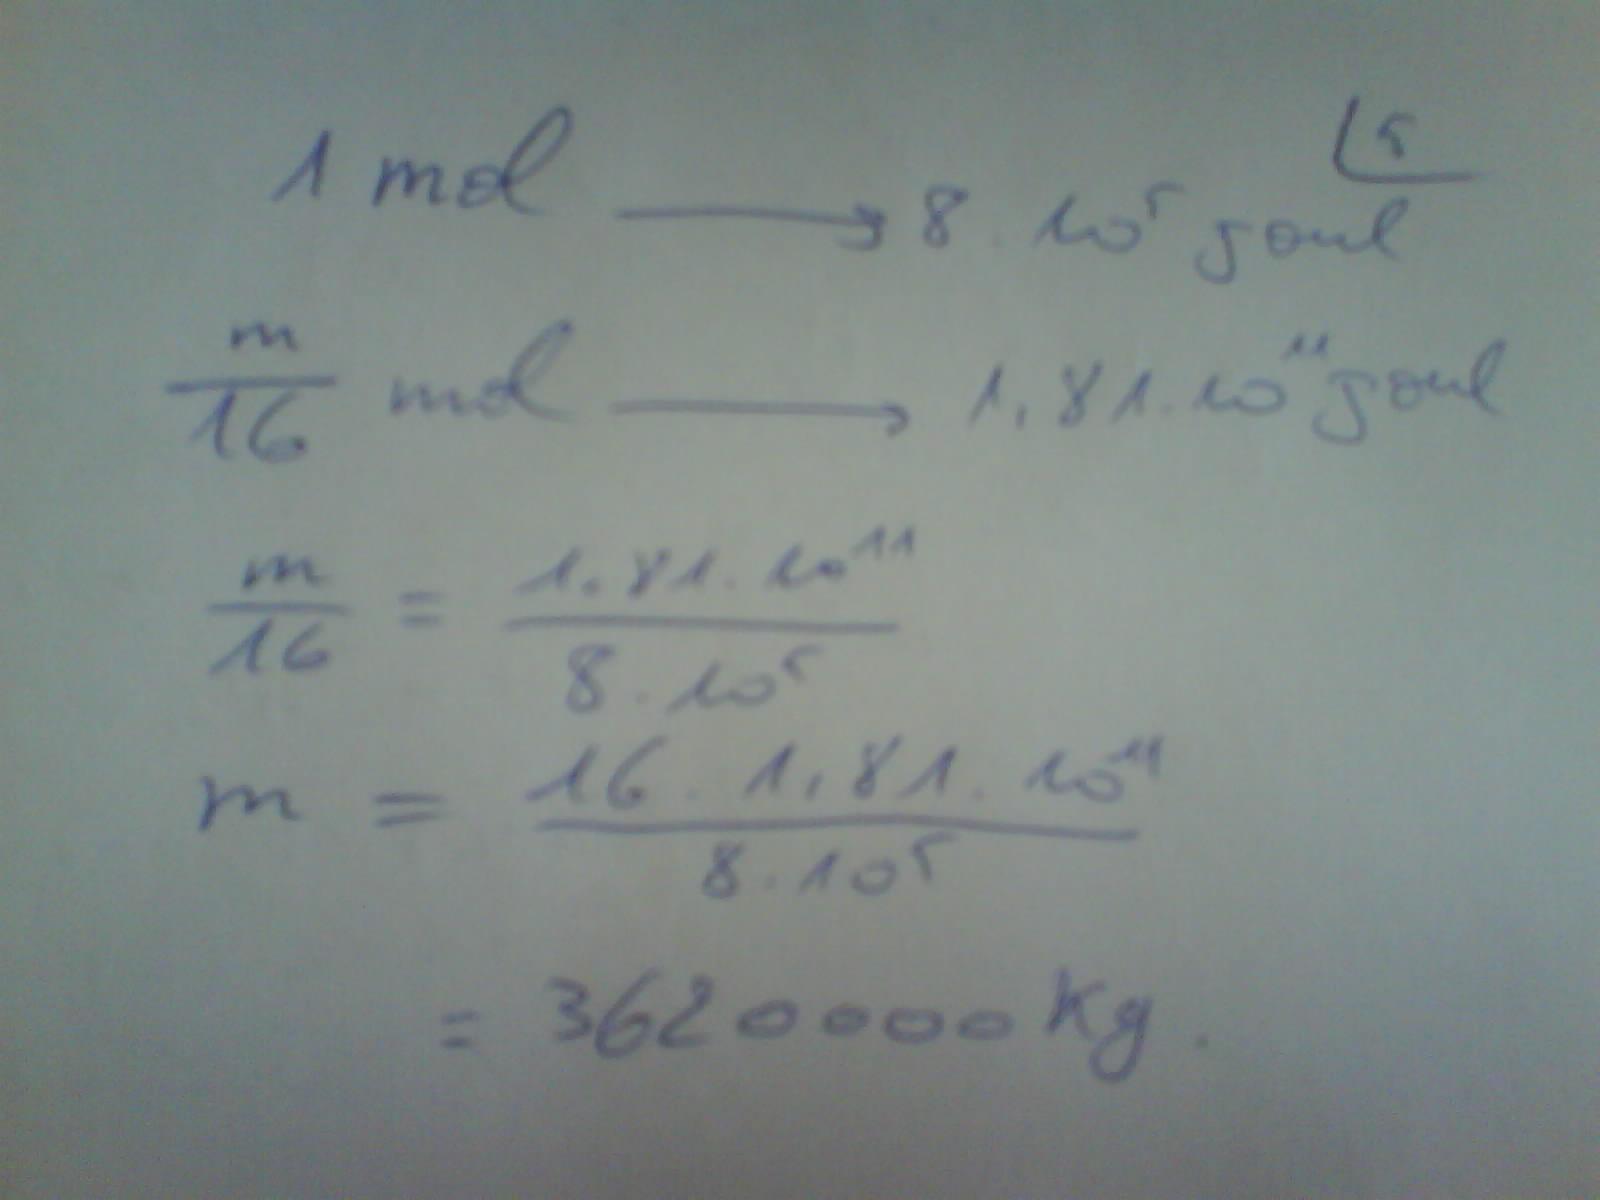 5
1 mol → 8 . 10⁵ joul
m/16 mol → 1,81 . 10¹¹ joul
m/16 = 1,81 . 10¹¹ / 8 . 10⁵
m = 16 . 1,81 . 10¹¹ / 8 . 10⁵
= 3620000 Kg .